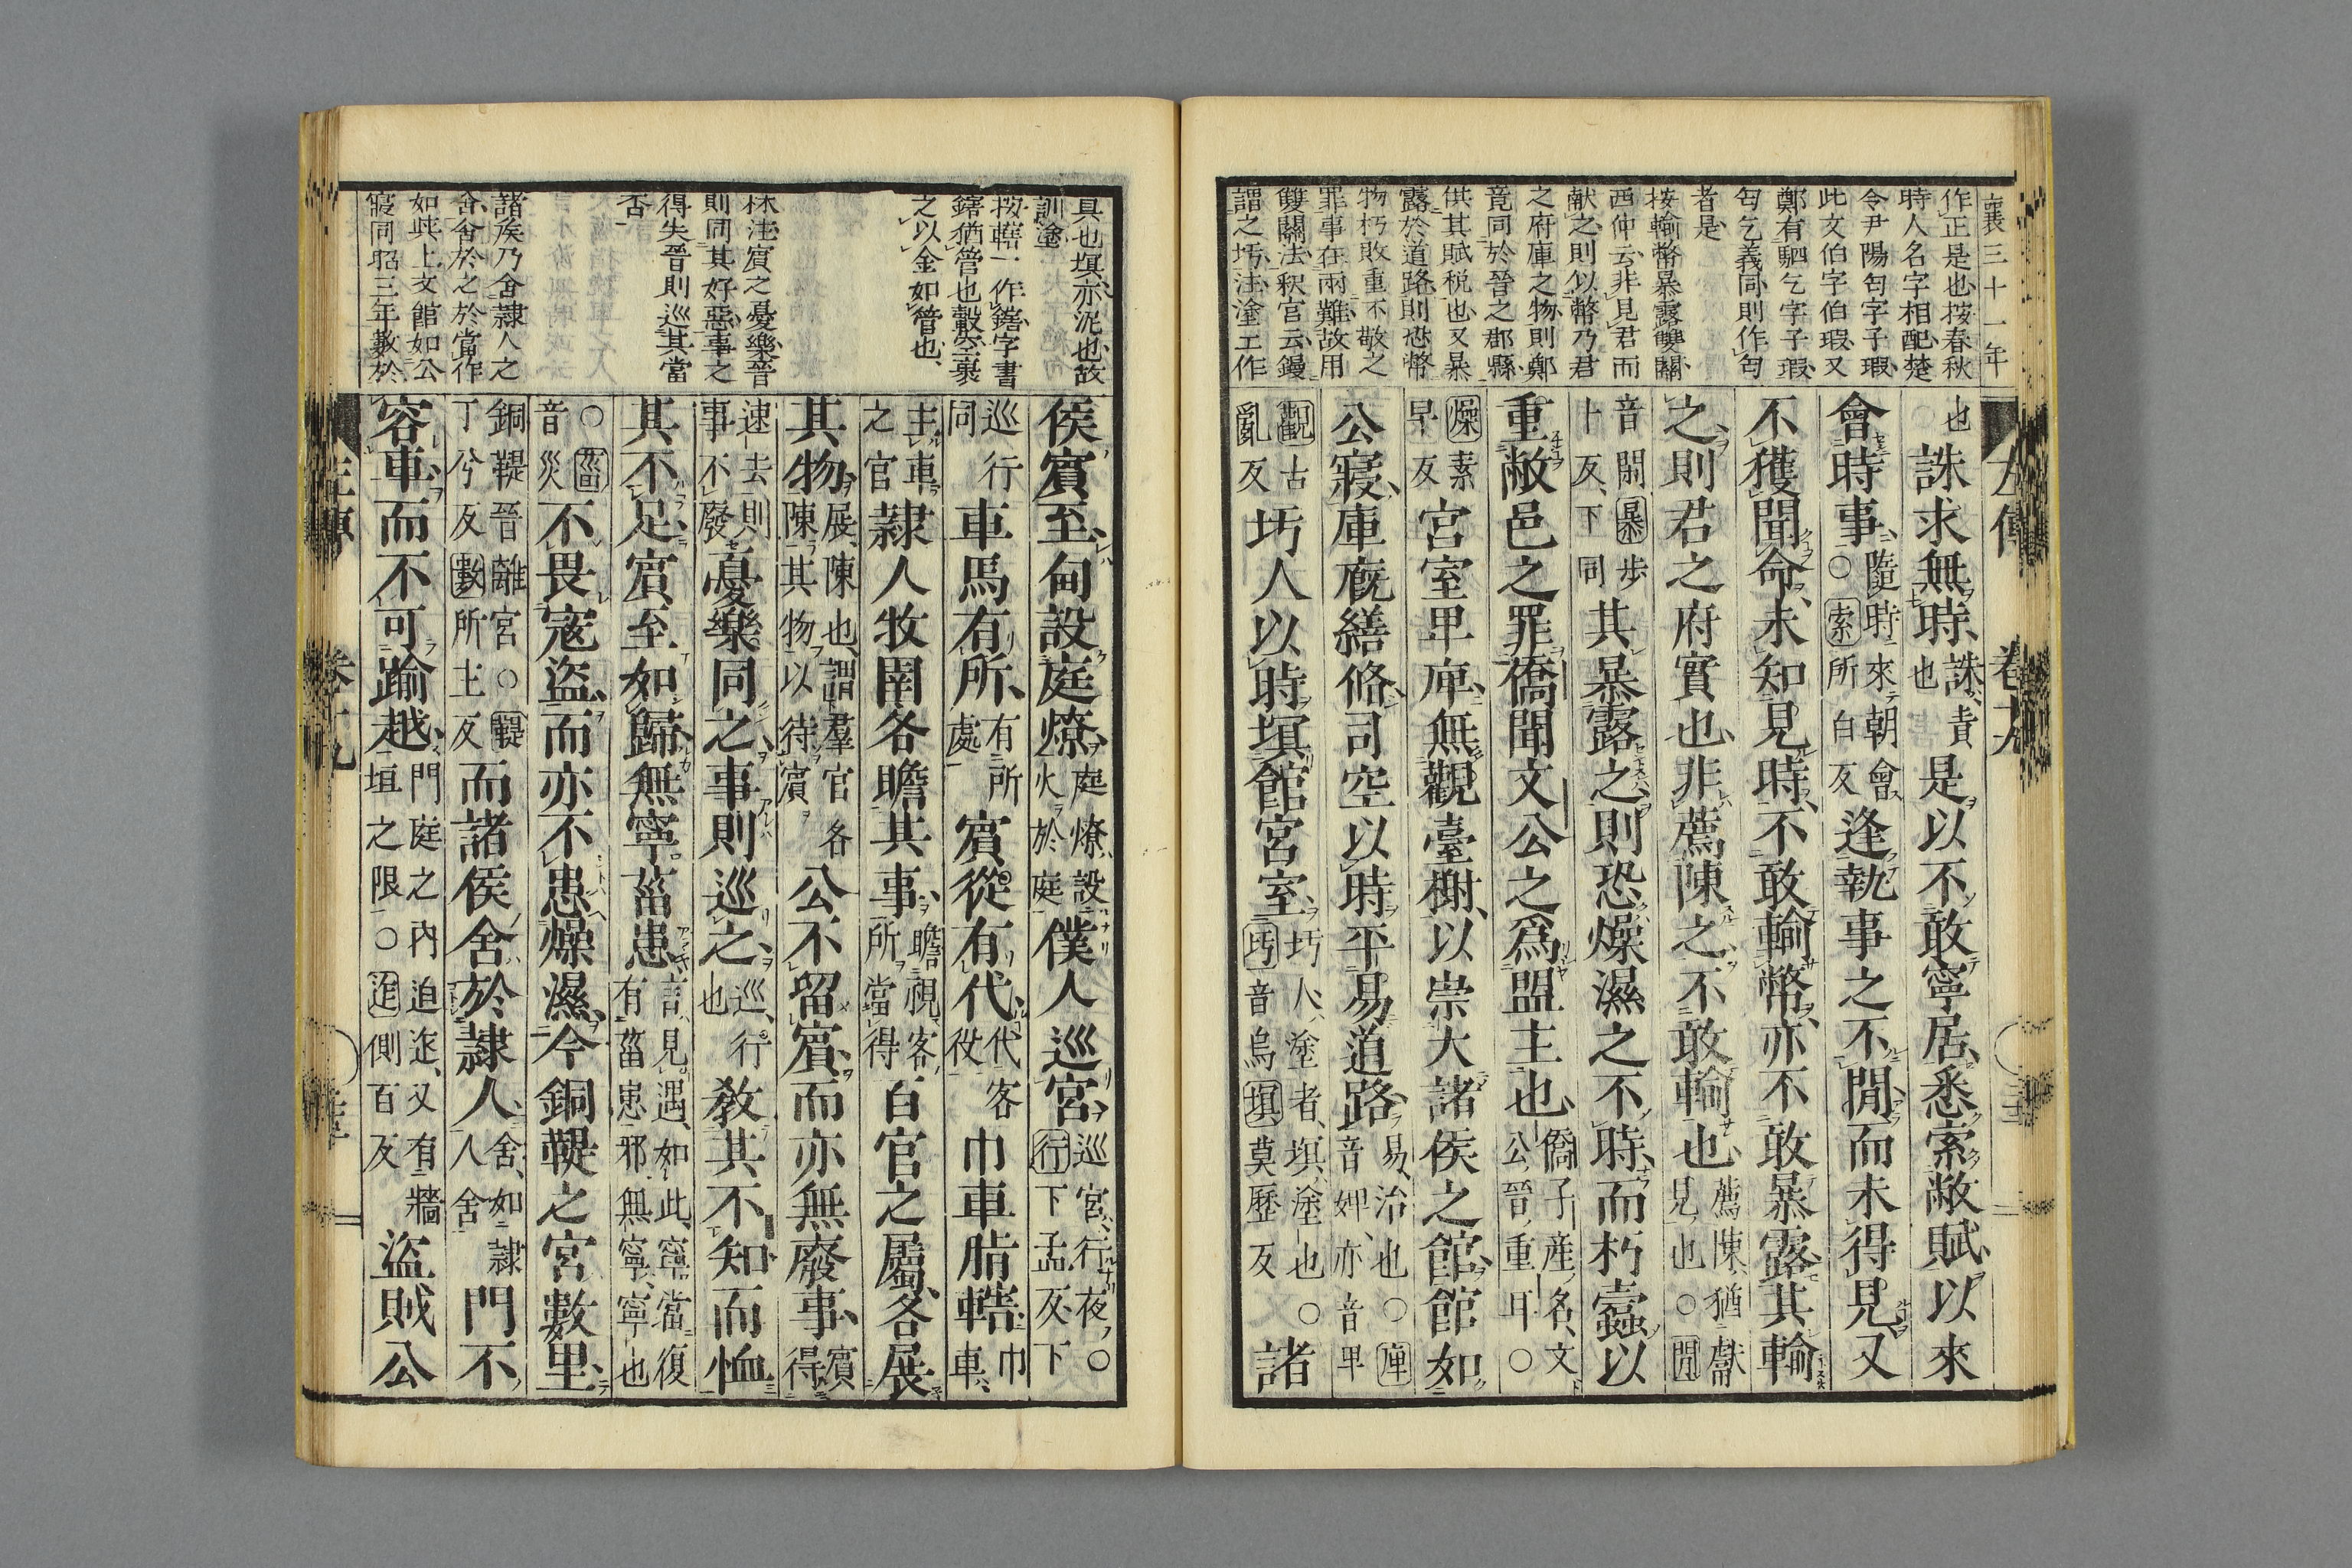 襄三十一年
作正是也按春秋
時人名字相配楚
令尹陽匄字子瑕
此文伯字伯瑕又
鄭有駟乞字子瑕
匄乞義同則作匄
者是
按輸幣暴露雙關
西仲云非見君而
献之則似幣乃君
之府庫之物則鄭
竟同於晉之郡縣
供其賦税也又暴
露於道路則恐幣
物朽敗重不敬之
罪事在兩難故用
雙關法釈官云鏝
謂之圬注塗工作
左傳 卷十九
也誅求無時誅責也是以不敢寧居悉索敝賦以來
會時事隨時來朝會○索所白反逢執事之不閒而未得見又
不獲聞命未知見時不敢輸幣亦不敢暴露其輸
之則君之府實也非薦陳之不敢輸也薦陳猶獻見也○閒
音閑暴步卜反下同其暴露之則恐燥濕之不時而朽蠹以
重敝邑之罪僑聞文公之爲盟主也僑子産名文公晉重耳○
燥素早反宮室卑庳無觀臺榭以崇大諸侯之館館如
公寢庫廐繕脩司空以時平易道路易治也○庳音婢亦音卑
觀古亂反圬人以時塓館宮室圬人塗者塓塗也○圬音烏塓莫歷反諸
具也塓亦泥也故
訓塗
按轄一作鎋字書
鎋猶管也轂空裹
之以金如管也
林注賓之憂樂晉
則同其好惡事之
得失晉則巡其當
否
諸侯乃舍隷人之
舍舍於之於當作
如與上文館如公
寢同昭三年數於
侯賓至甸設庭燎庭燎設火於庭僕人巡宮巡宮行夜○行下孟反下
巡行同車馬有所有所處賓從有代代客役巾車脂轄巾車
主車之官隷人牧圉各瞻其事瞻視客所當得百官之屬各展
其物展陳也謂羣官各陳其物以待濱公不留賓而亦無廢事賓得
速去則事不廢憂樂同之事則巡之巡行也教其不知而恤
其不足賓至如歸無寧菑患言見遇如此寧當復有菑患邪無寧寧也
○菑音災不畏寇盜而亦不患燥濕今銅鞮之宮數里
銅鞮晉離宮○鞮丁兮反數所主反而諸侯舍於隷人舍如隷人舍門不
容車而不可踰越門庭之内迫迮又有牆垣之限○迮側百反盜賊公
左傳 卷十九